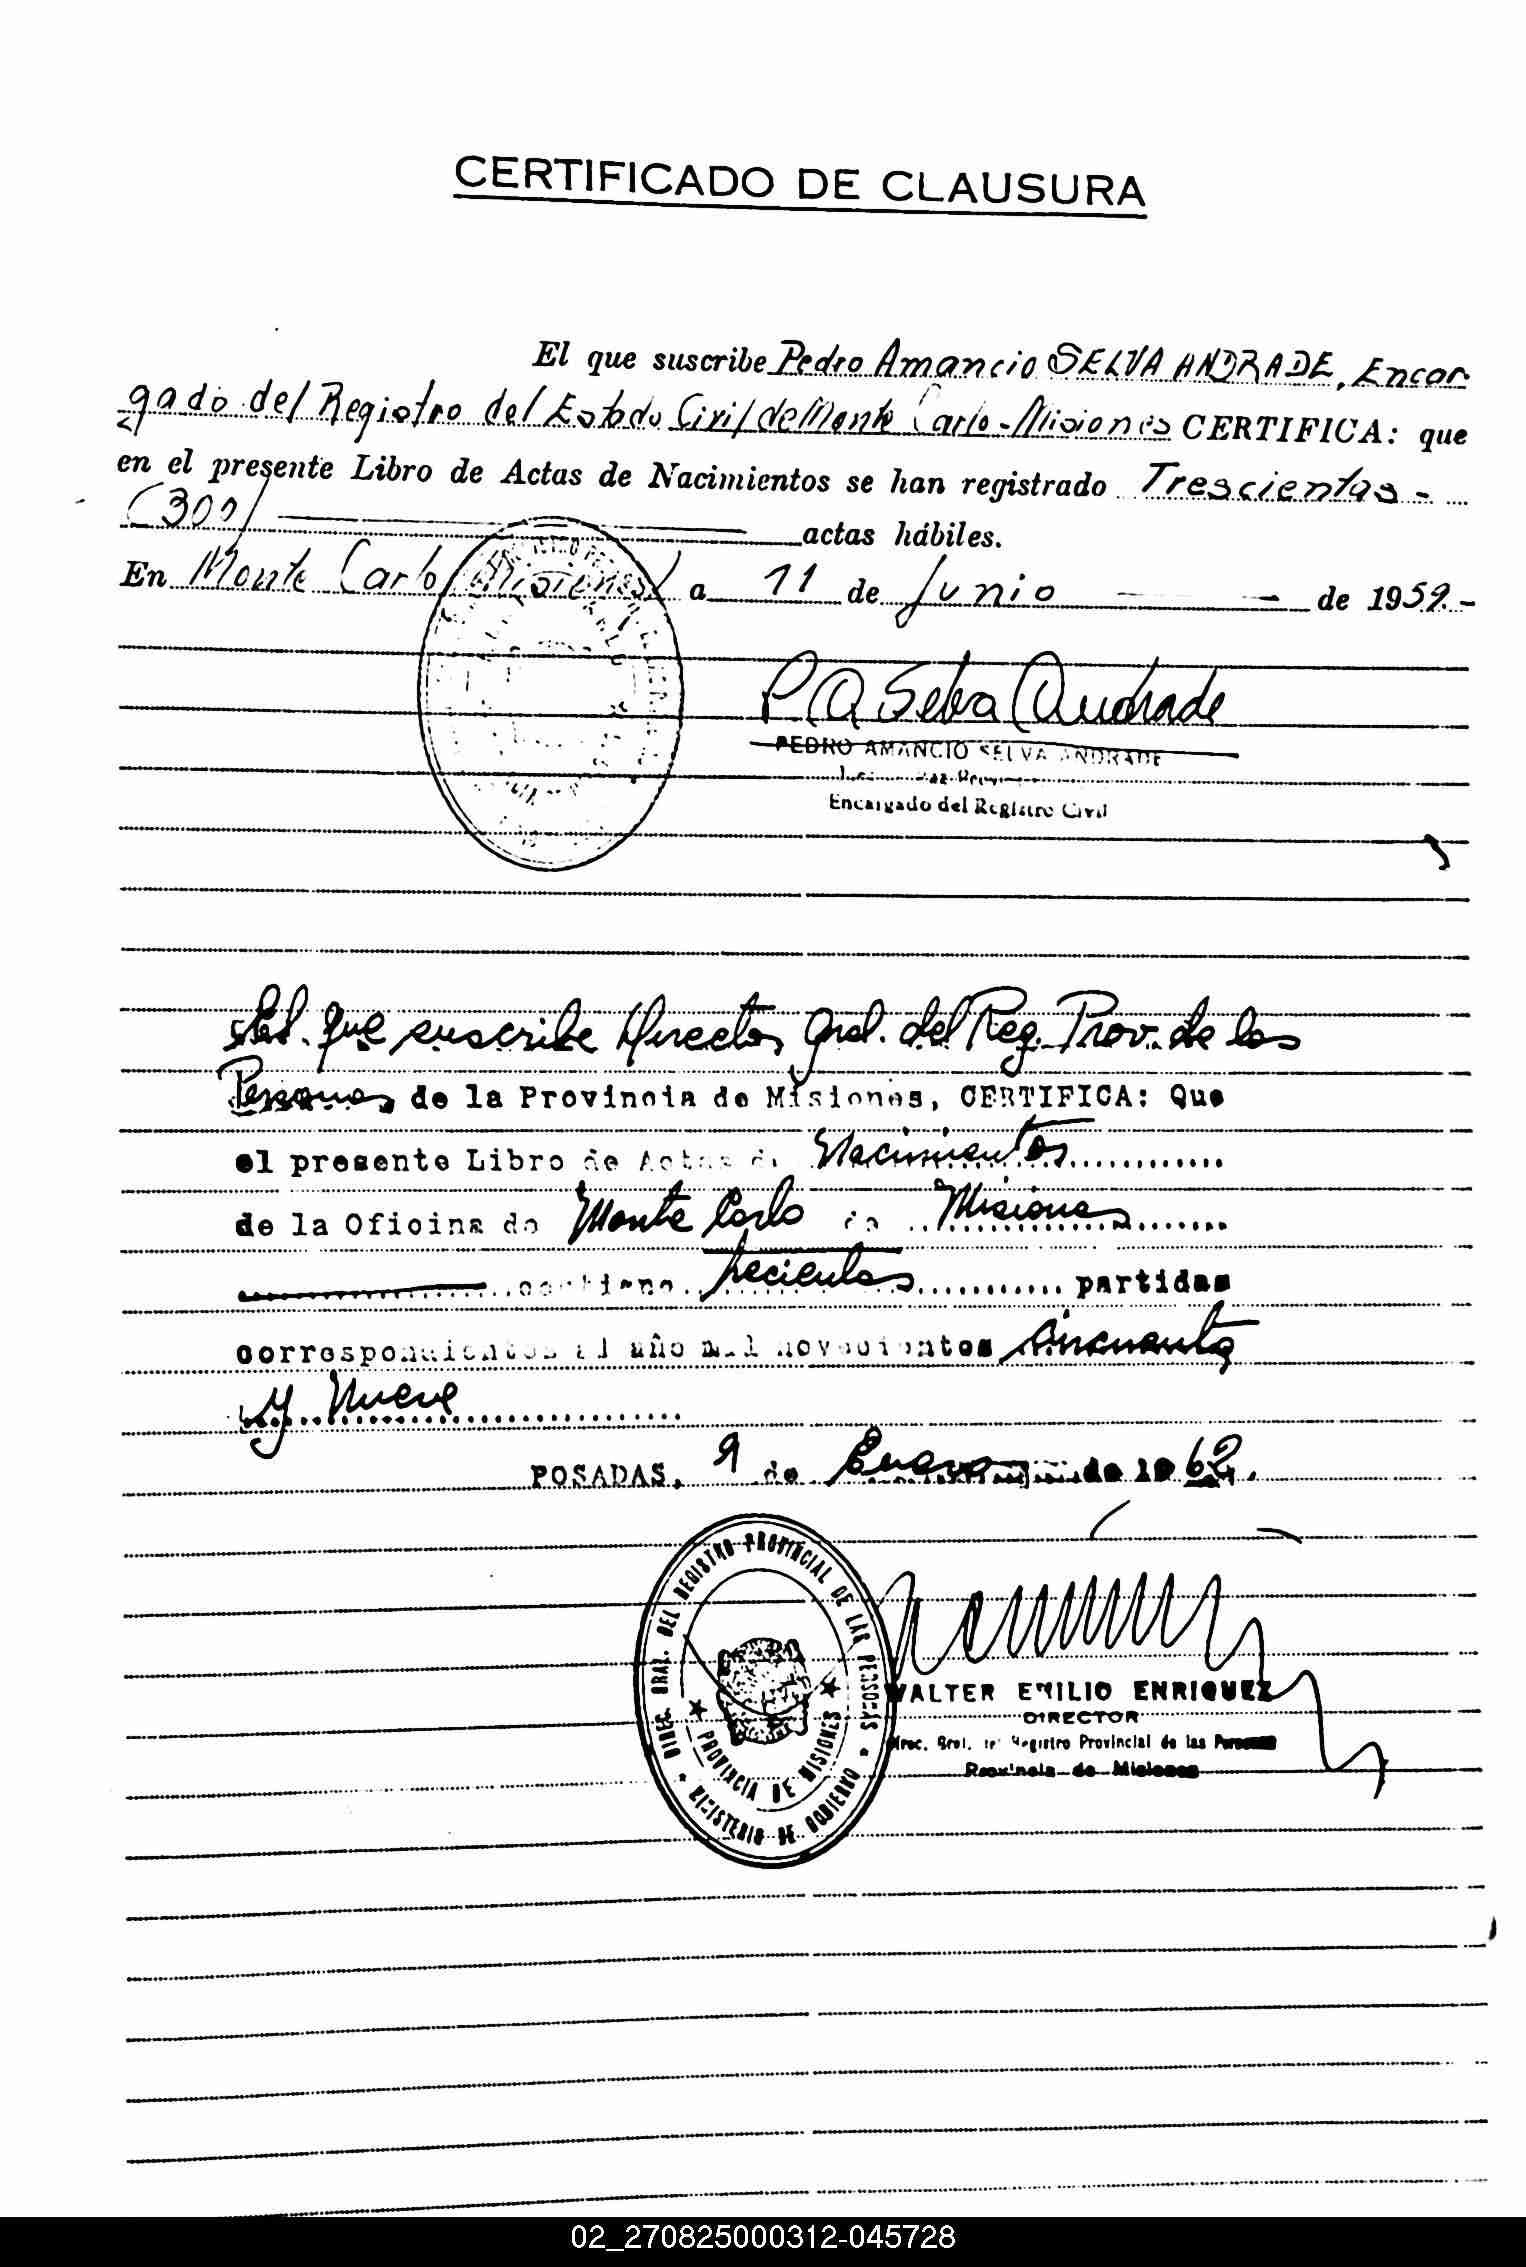 CERTIFICADO DE CLAUSURA
El que suscribe Pedro Amancio SELVA ANDRADE, Encar
gado del Registro del Estado Civil de Monte Carlo - Misiones CERTIFICA: que
en el presente Libro de Actas de Nacimientos se han registrado Trescientas -
(300) actas hábiles.
En Monte Carlo (Misiones) a 11 de Junio de 1959.-
P A Selva Andrade
PEDRO AMANCIO SELVA ANDRADE
Encargado del Registro Civil
El que suscribe Director Gral. del Reg. Prov. de las
Personas de la Provincia de Misiones, CERTIFICA: Que
el presente Libro de Actas de Nacimientos
de la Oficina de Monte Carlo de Misiones
contiene trecientas partidas
correspondientes al año mil novecientos cincuenta
y nueve
POSADAS, 9 de Enero de 1962.
DIREC. GRAL. DEL REGISTRO PROVINCIAL DE LAS PERSONAS
PROVINCIA DE MISIONES
MINISTERIO DE GOBIERNO
WALTER EMILIO ENRIQUEZ
DIRECTOR
Direc. Gral. del Registro Provincial de las Personas
Provincia de Misiones
02_270825000312-045728